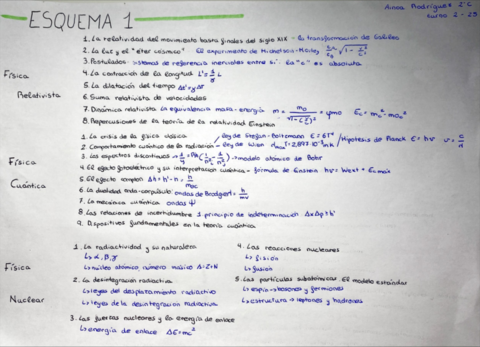 ESQUEMA 1
Ainoa Rodríguez 2ºC
1. La relatividad del movimiento hasta finales del siglo XIX - la transformación de Galileo
2. La luz y el "éter cósmico" El experimento de Michelson-Morley
3. Postulados - sistemas de referencia inerciales entre sí la "c" es absoluta
Física Relativista
4. La contracción de la longitud
5. La dilatación del tiempo
6. Suma relativista de velocidades
7. Dinámica relativista la equivalencia masa-energía
8. Repercusiones de la teoría de la relatividad Einstein
Física Cuántica
1. La crisis de la física clásica
2. Comportamiento cuántico de la radiación - ley de Stefan-Boltzmann / Hipótesis de Planck E=hν
ley de Wien
3. Los espectros discontinuos → modelo atómico de Bohr
4. El efecto fotoeléctrico y su interpretación cuántica - fórmula de Einstein
5. El efecto Compton
6. La dualidad onda-corpúsculo
7. La mecánica cuántica ondas Ψ
8. Las relaciones de incertidumbre 1. principio de indeterminación
9. Dispositivos fundamentales en la teoría cuántica
Física Nuclear
1. La radiactividad y su naturaleza
↳ α, β, γ
↳ núcleo atómico número másico A=Z+N
2. La desintegración radiactiva
↳ leyes del desplazamiento radiactivo
↳ leyes de la desintegración radiactiva
3. Las fuerzas nucleares y la energía de enlace
↳ energía de enlace ΔE=mc²
4. Las reacciones nucleares
↳ fisión
↳ fusión
5. Las partículas subatómicas. El modelo estándar
↳ espín → bosones y fermiones
↳ estructura → leptones y hadrones